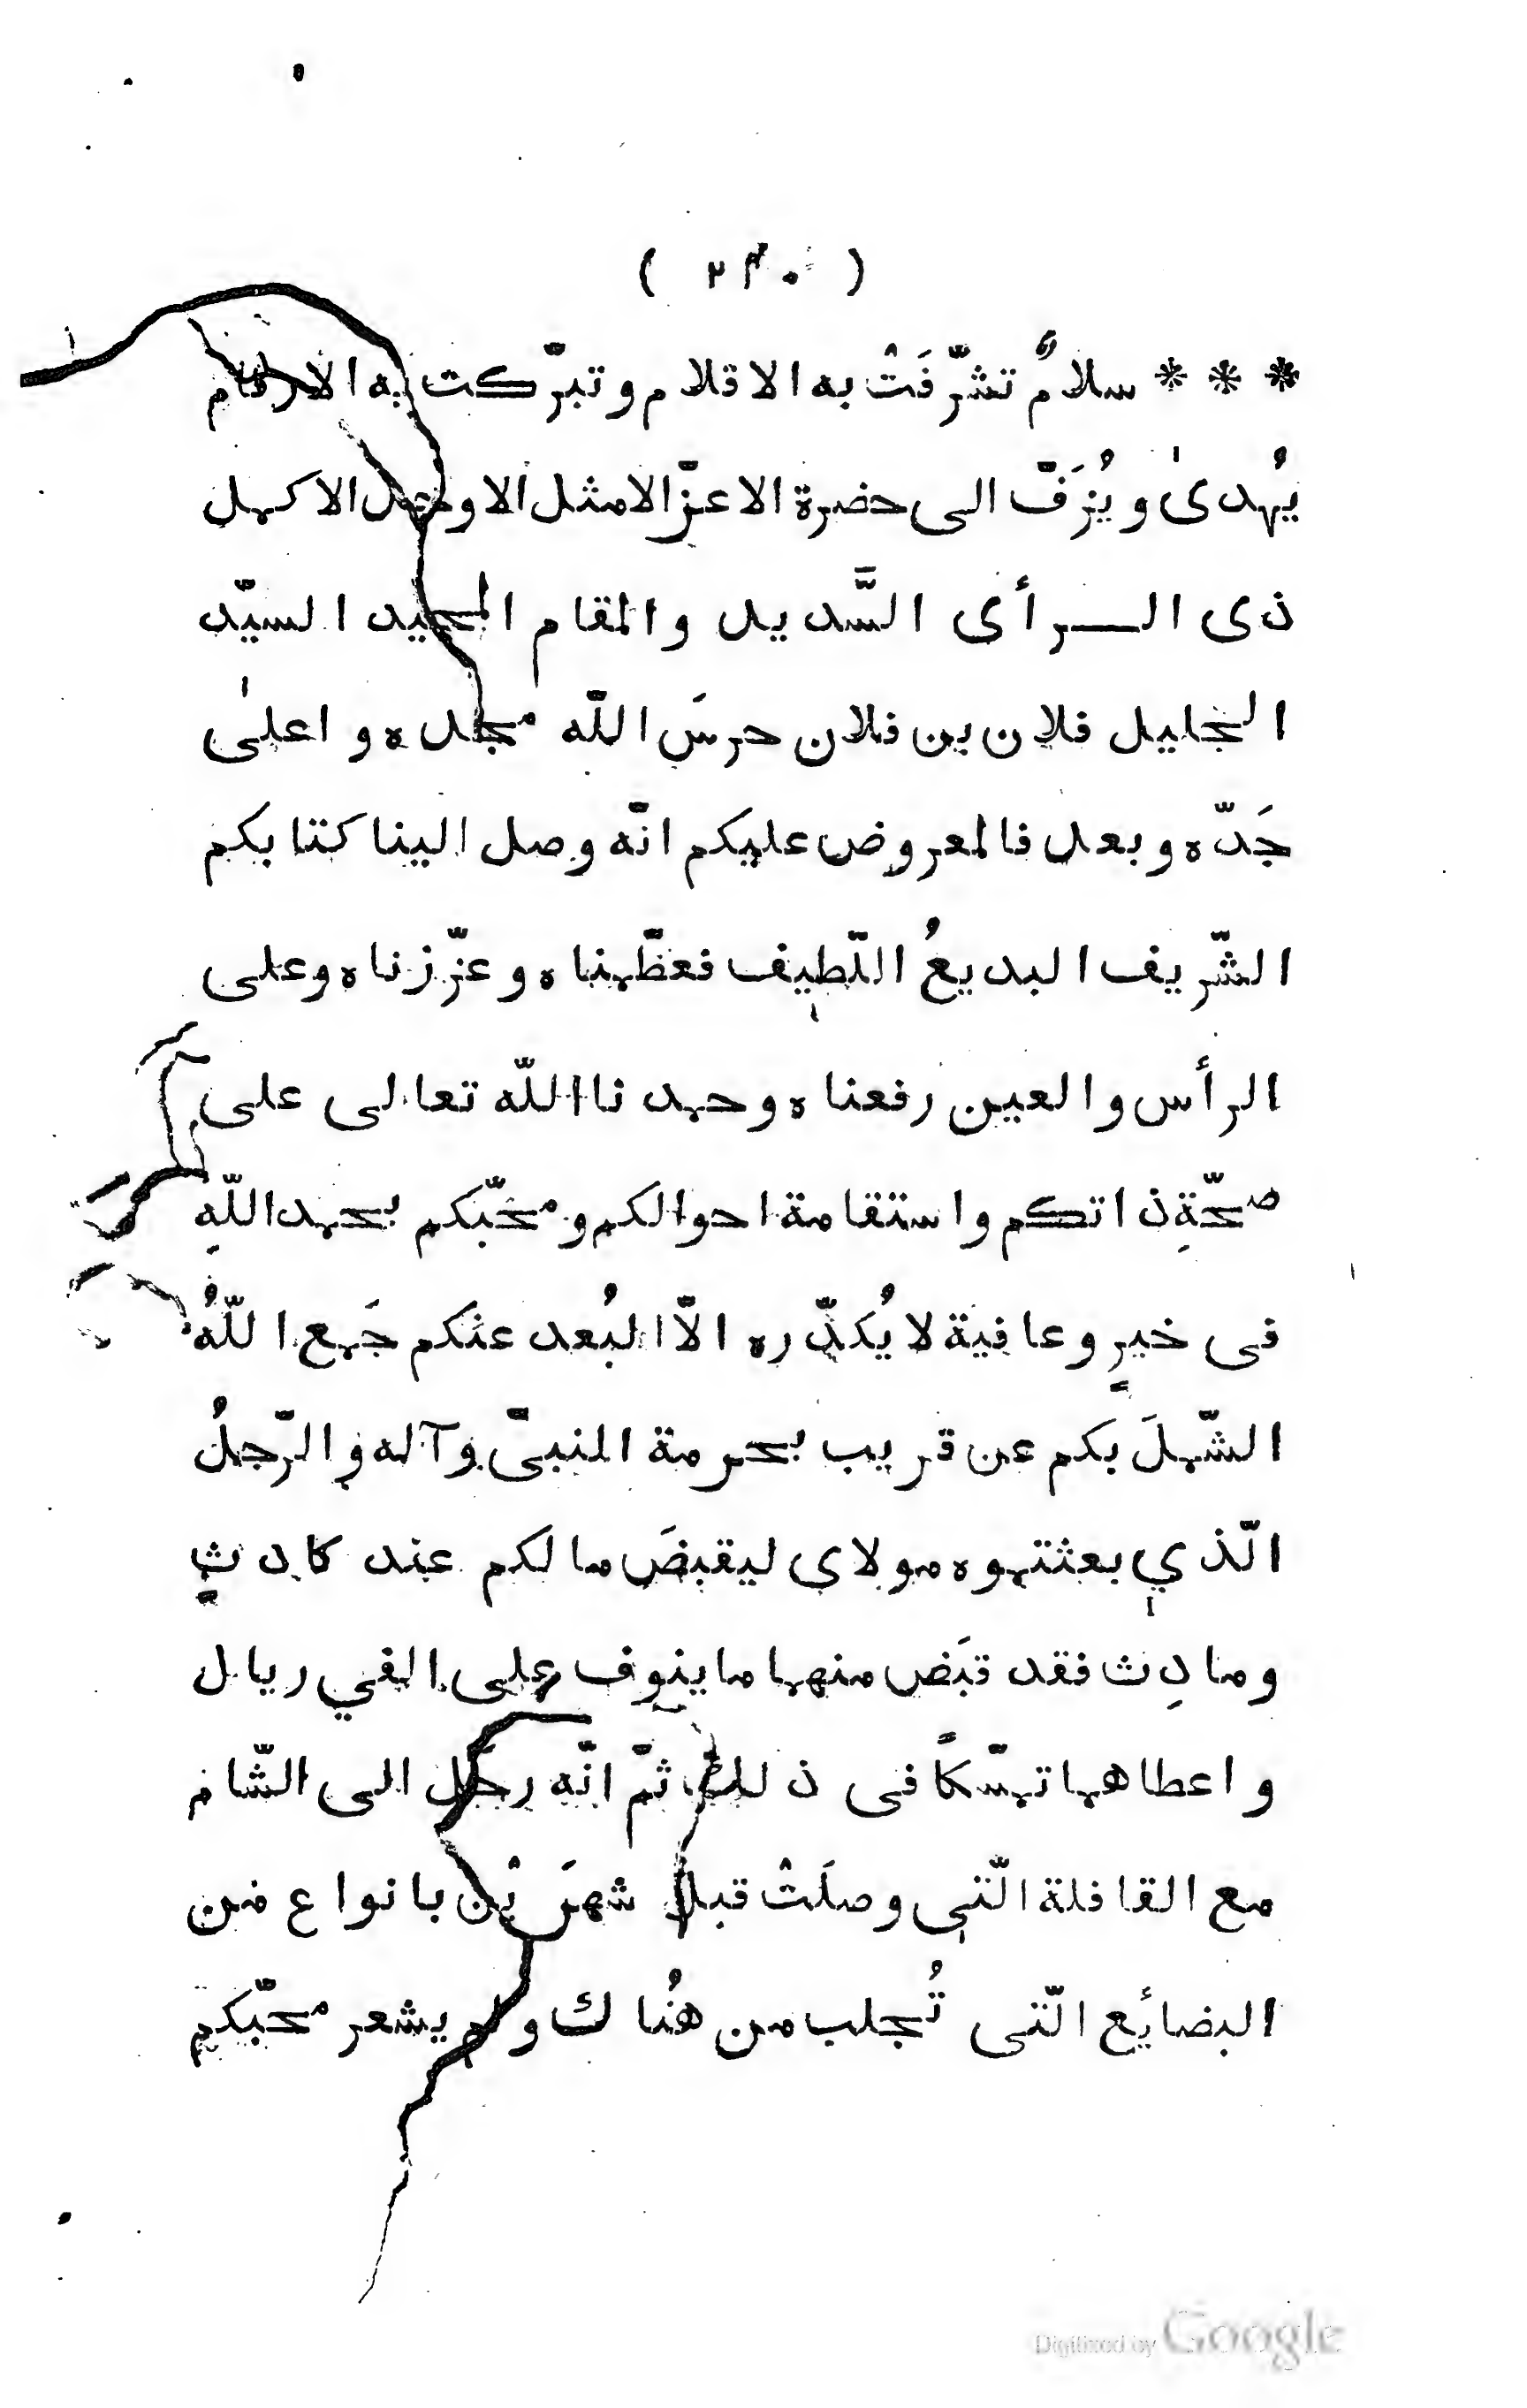 ( ٢٤٠ )
* * * سلامٌ تشرّفَتْ به الاقلام وتبرّكت به الارقام
يُهدىٰ ويُزَفّ الى حضرة الاعزّ الامثل الاوحد الاكمل
ذى الـــرأى السَّديد والمقام المجيد السيّد
الجليل فلان بن فلان حرسَ اللّه مجده واعلىٰ
جَدّه وبعد فالمعروض عليكم انّه وصل الينا كتابكم
الشّريف البديعُ اللّطيف فعظّمناه وعزّزناه وعلى
الرأس والعين رفعناه وحمدنا اللّه تعالى على
صحّةِ ذاتكم واستقامة احوالكم ومحبّكم بحمد اللّهِ
فى خيرٍ وعافية لا يُكدّره الّا البُعد عنكم جَمع اللّهُ
الشّملَ بكم عن قريب بحرمة النبىّ وآله والرّجلُ
الّذي بعثتموه مولاى ليقبضَ مالكم عند كادثٍ
ومادِث فقد قبَض منهما ما ينوف على الفي ريال
واعطاهما تمسّكًا فى ذلك ثمّ انّه رحَل الى الشّام
مع القافلة الّتى وصلَتْ قبل شهرَيْن بانواع من
البضائع الّتى تُجلب من هُناك ولم يشعر محبّكم
Digitized by Google